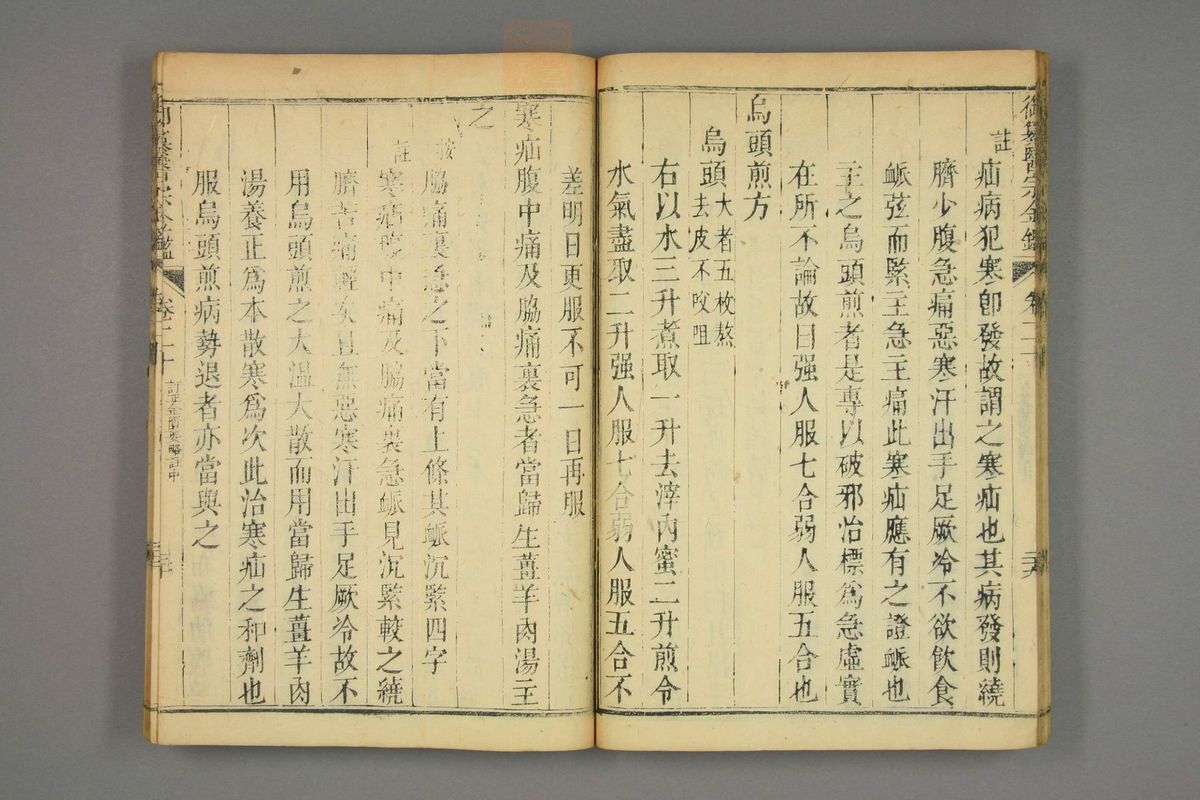 御纂醫宗金鑑 卷二十
註 疝病犯寒卽發故謂之寒疝也其病發則繞
臍少腹急痛惡寒汗出手足厥冷不欲飲食
脈弦而緊主急主痛此寒疝應有之證脈也
主之烏頭煎者是專以破邪治標爲急虛實
在所不論故曰强人服七合弱人服五合也
烏頭煎方
烏頭大者五枚熬
去皮不㕮咀
右以水三升煮取一升去滓內蜜二升煎令
水氣盡取二升强人服七合弱人服五合不
差明日更服不可一日再服
寒疝腹中痛及脇痛裏急者當歸生薑羊肉湯主
之
按 脇痛裏急之下當有上條其脈沉緊四字
註 寒疝腹中痛及脇痛裏急脈見沉緊較之繞
臍苦痛輕矣且無惡寒汗出手足厥冷故不
用烏頭煎之大溫大散而用當歸生薑羊肉
湯養正爲本散寒爲次此治寒疝之和劑也
服烏頭煎病勢退者亦當與之
御纂醫宗金鑑 卷二十 訂正金匱要略註中